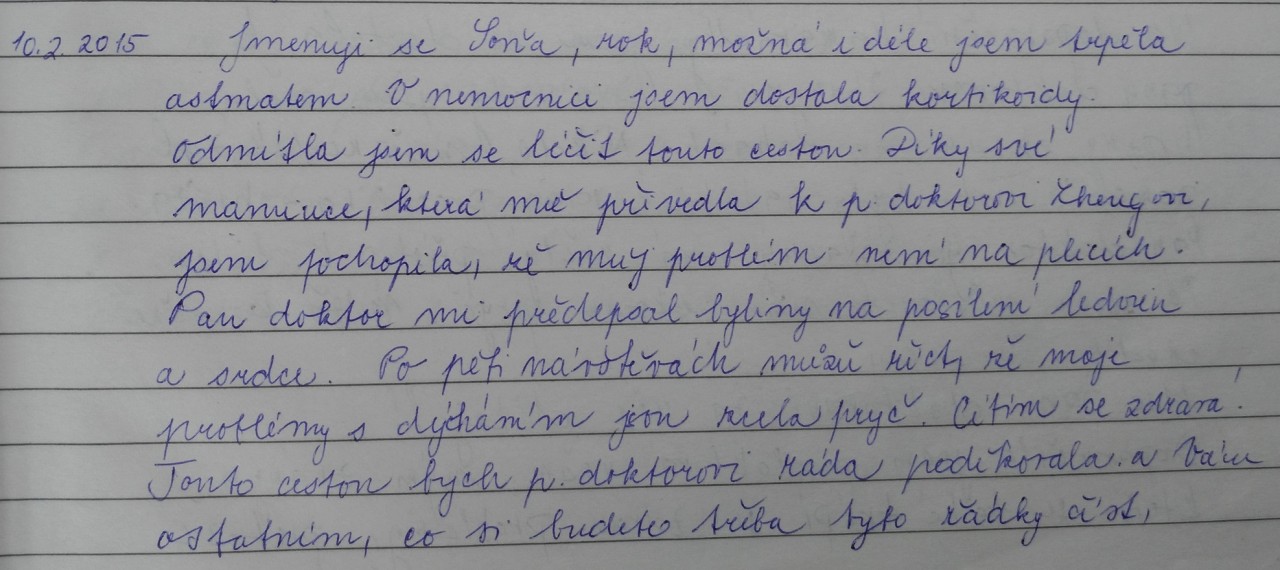 10.2.2015 Jmenuji se Soňa, rok, možná i déle jsem trpěla
astmatem. V nemocnici jsem dostala kortikoidy.
Odmítla jsem se léčit touto cestou. Díky své
mamince, která mě přivedla k p. doktorovi Zhengovi,
jsem pochopila, že můj problém není na plicích.
Pan doktor mi předepsal byliny na posílení ledvin
a srdce. Po pěti návštěvách můžu říct, že moje
problémy s dýcháním jsou zcela pryč. Cítím se zdravá.
Touto cestou bych p. doktorovi ráda poděkovala. a Vám
ostatním, co si budete třeba tyto řádky číst,